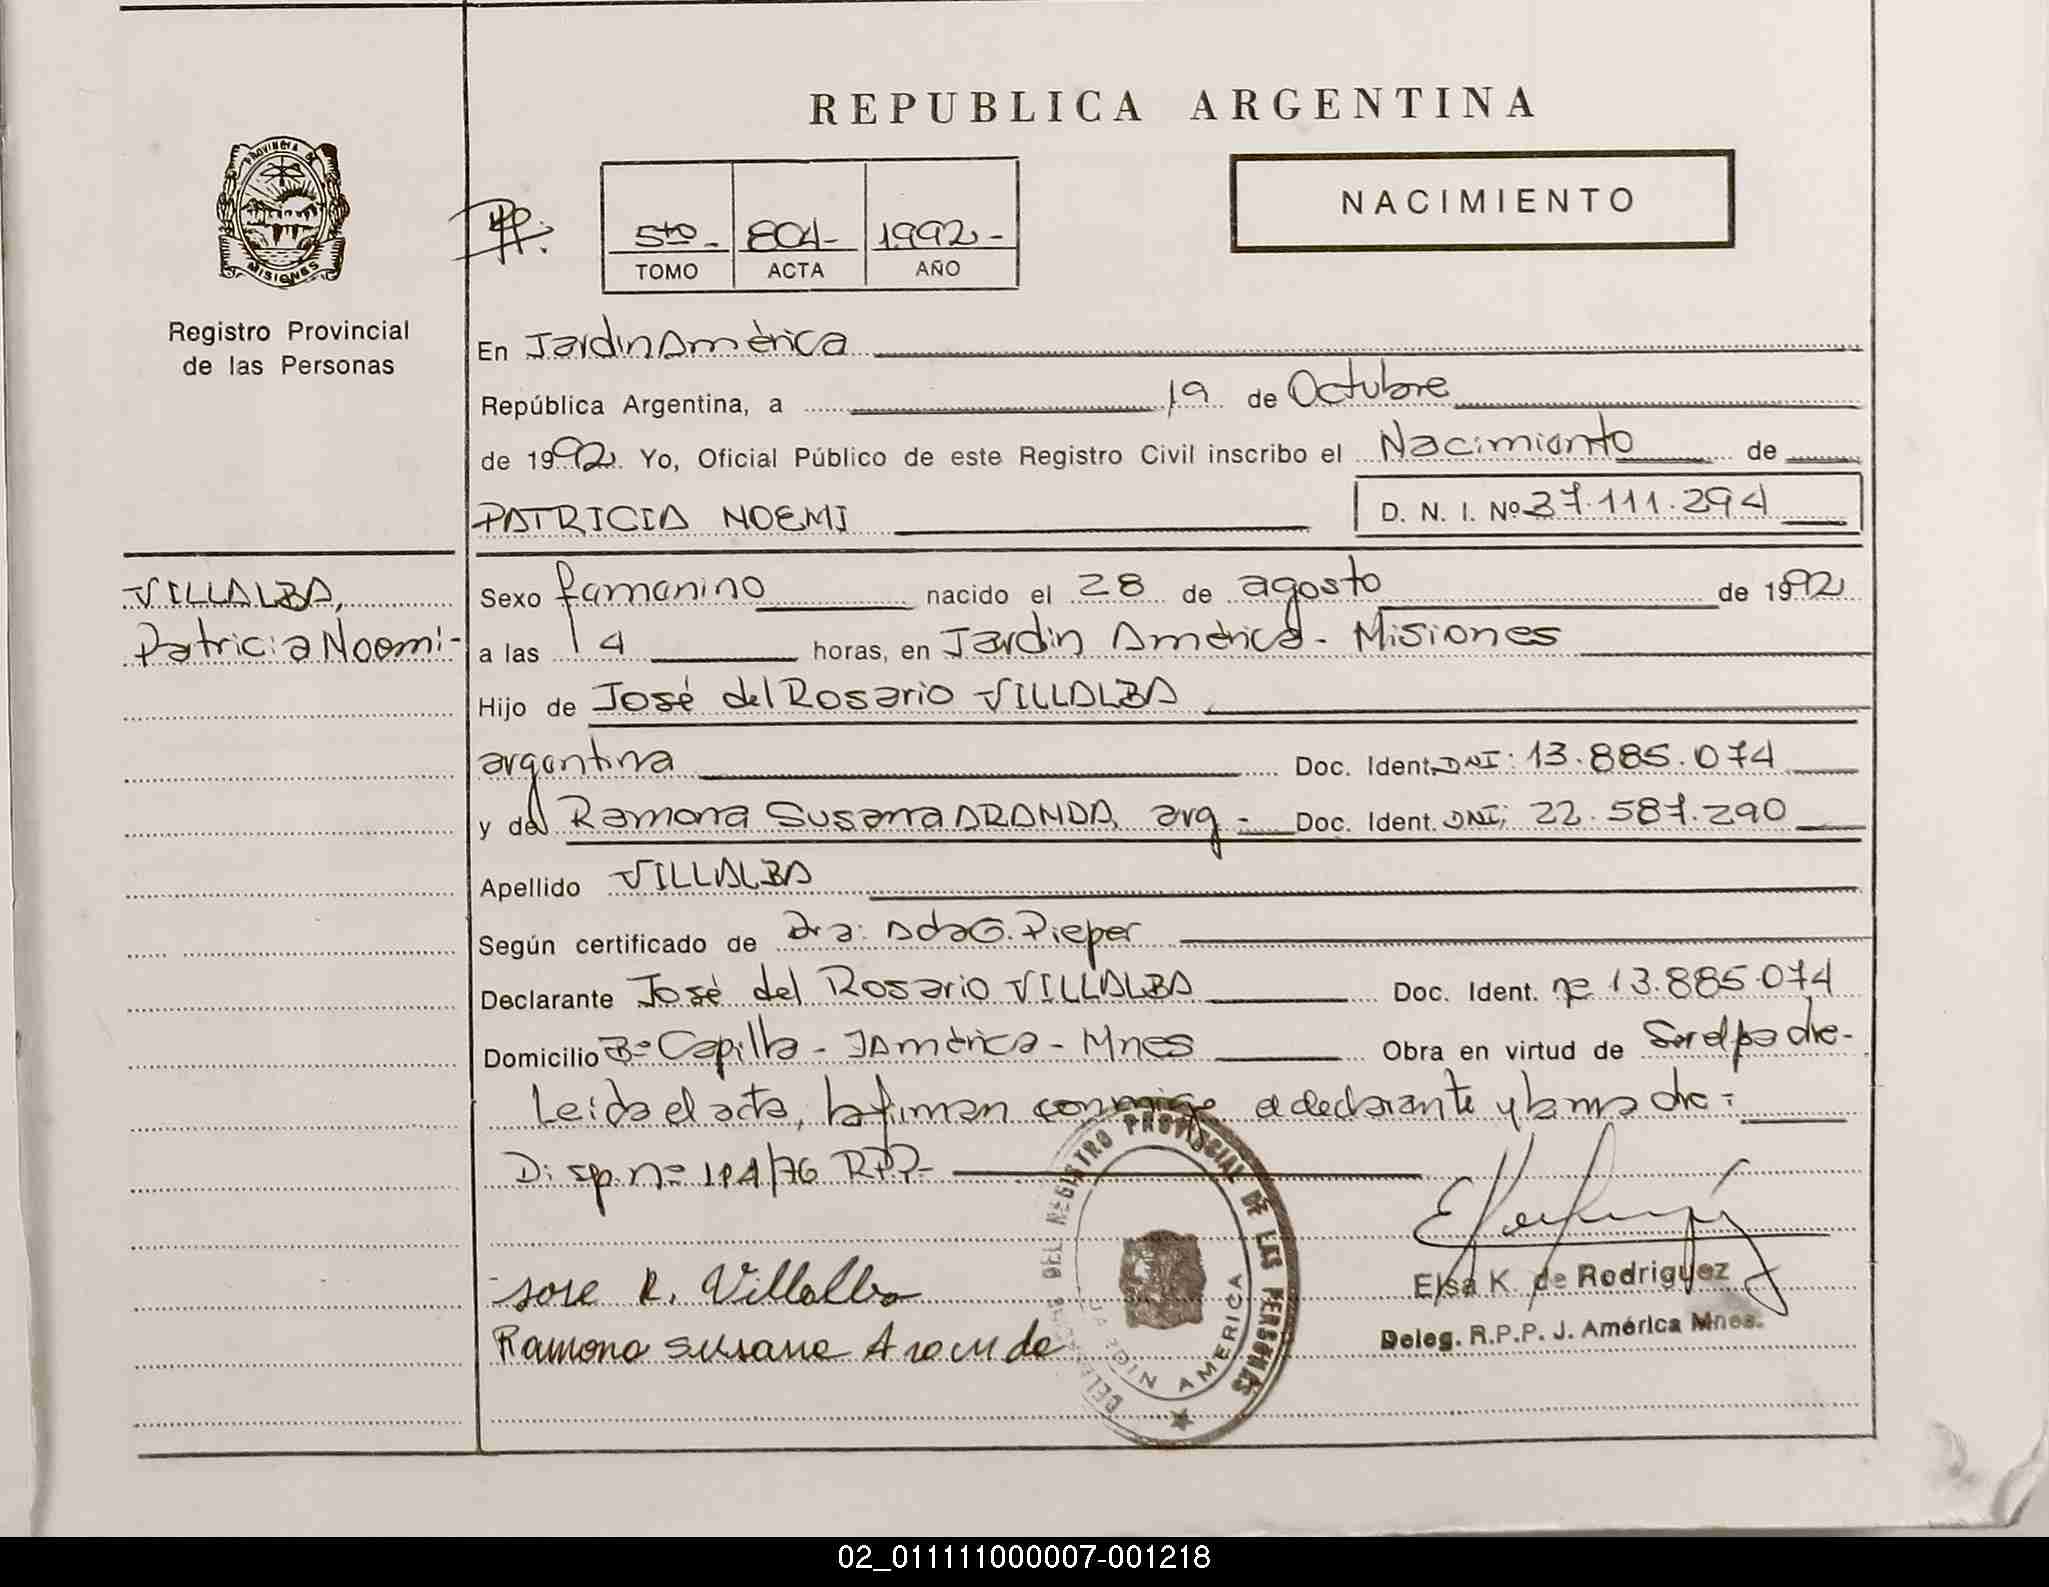 REPUBLICA ARGENTINA
NACIMIENTO
PROVINCIA DE
MISIONES
Registro Provincial
de las Personas
5to - 804- 1992-
TOMO ACTA AÑO
En Jardin América
República Argentina, a 19 de Octubre
de 1992. Yo, Oficial Público de este Registro Civil inscribo el Nacimiento de
PATRICIA NOEMI D. N. I. Nº 37.111.294
VILLALBA,
Patricia Noemi-
Sexo femenino nacido el 28 de agosto de 1992
a las 14 horas, en Jardin América - Misiones
Hijo de José del Rosario VILLALBA
argentina Doc. Ident. DNI: 13.885.074
y de Ramona Susana ARANDA, arg - Doc. Ident. DNI; 22.587.290
Apellido VILLALBA
Según certificado de Dra: Ada G. Pieper
Declarante José del Rosario VILLALBA Doc. Ident. nº 13.885.074
Domicilio Bº Capilla - J América - Mnes Obra en virtud de Ser el padre-
Leida el acta, la firman conmigo el declarante y la madre =
Disp. nº 194/76 RPP-
Jose R. Villalba
Ramona Susana Aranda
REGISTRO PROVINCIAL DE LAS PERSONAS
JARDIN AMERICA
Elsa K. de Rodriguez
Deleg. R.P.P. J. América Mnes.
02_011111000007-001218